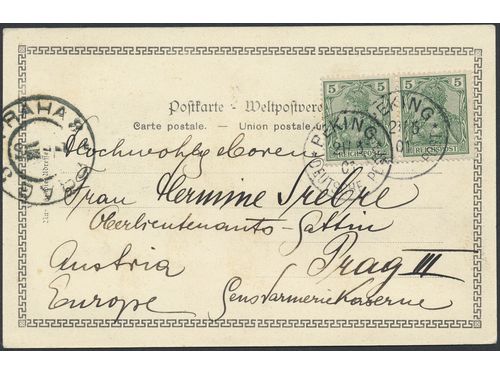 Postkarte - Weltpostverein
Carte postale. Union postale
5 5
REICHSPOST REICHSPOST
PEKING
DEUTSCHE POST
PEKING
01
PRAHA
PRAG
Hochwohlgeboren
Frau Hermine Srebre
Oberlieutenants-Gattin
Austria Prag III
Europe Gensdarmeriekaserne